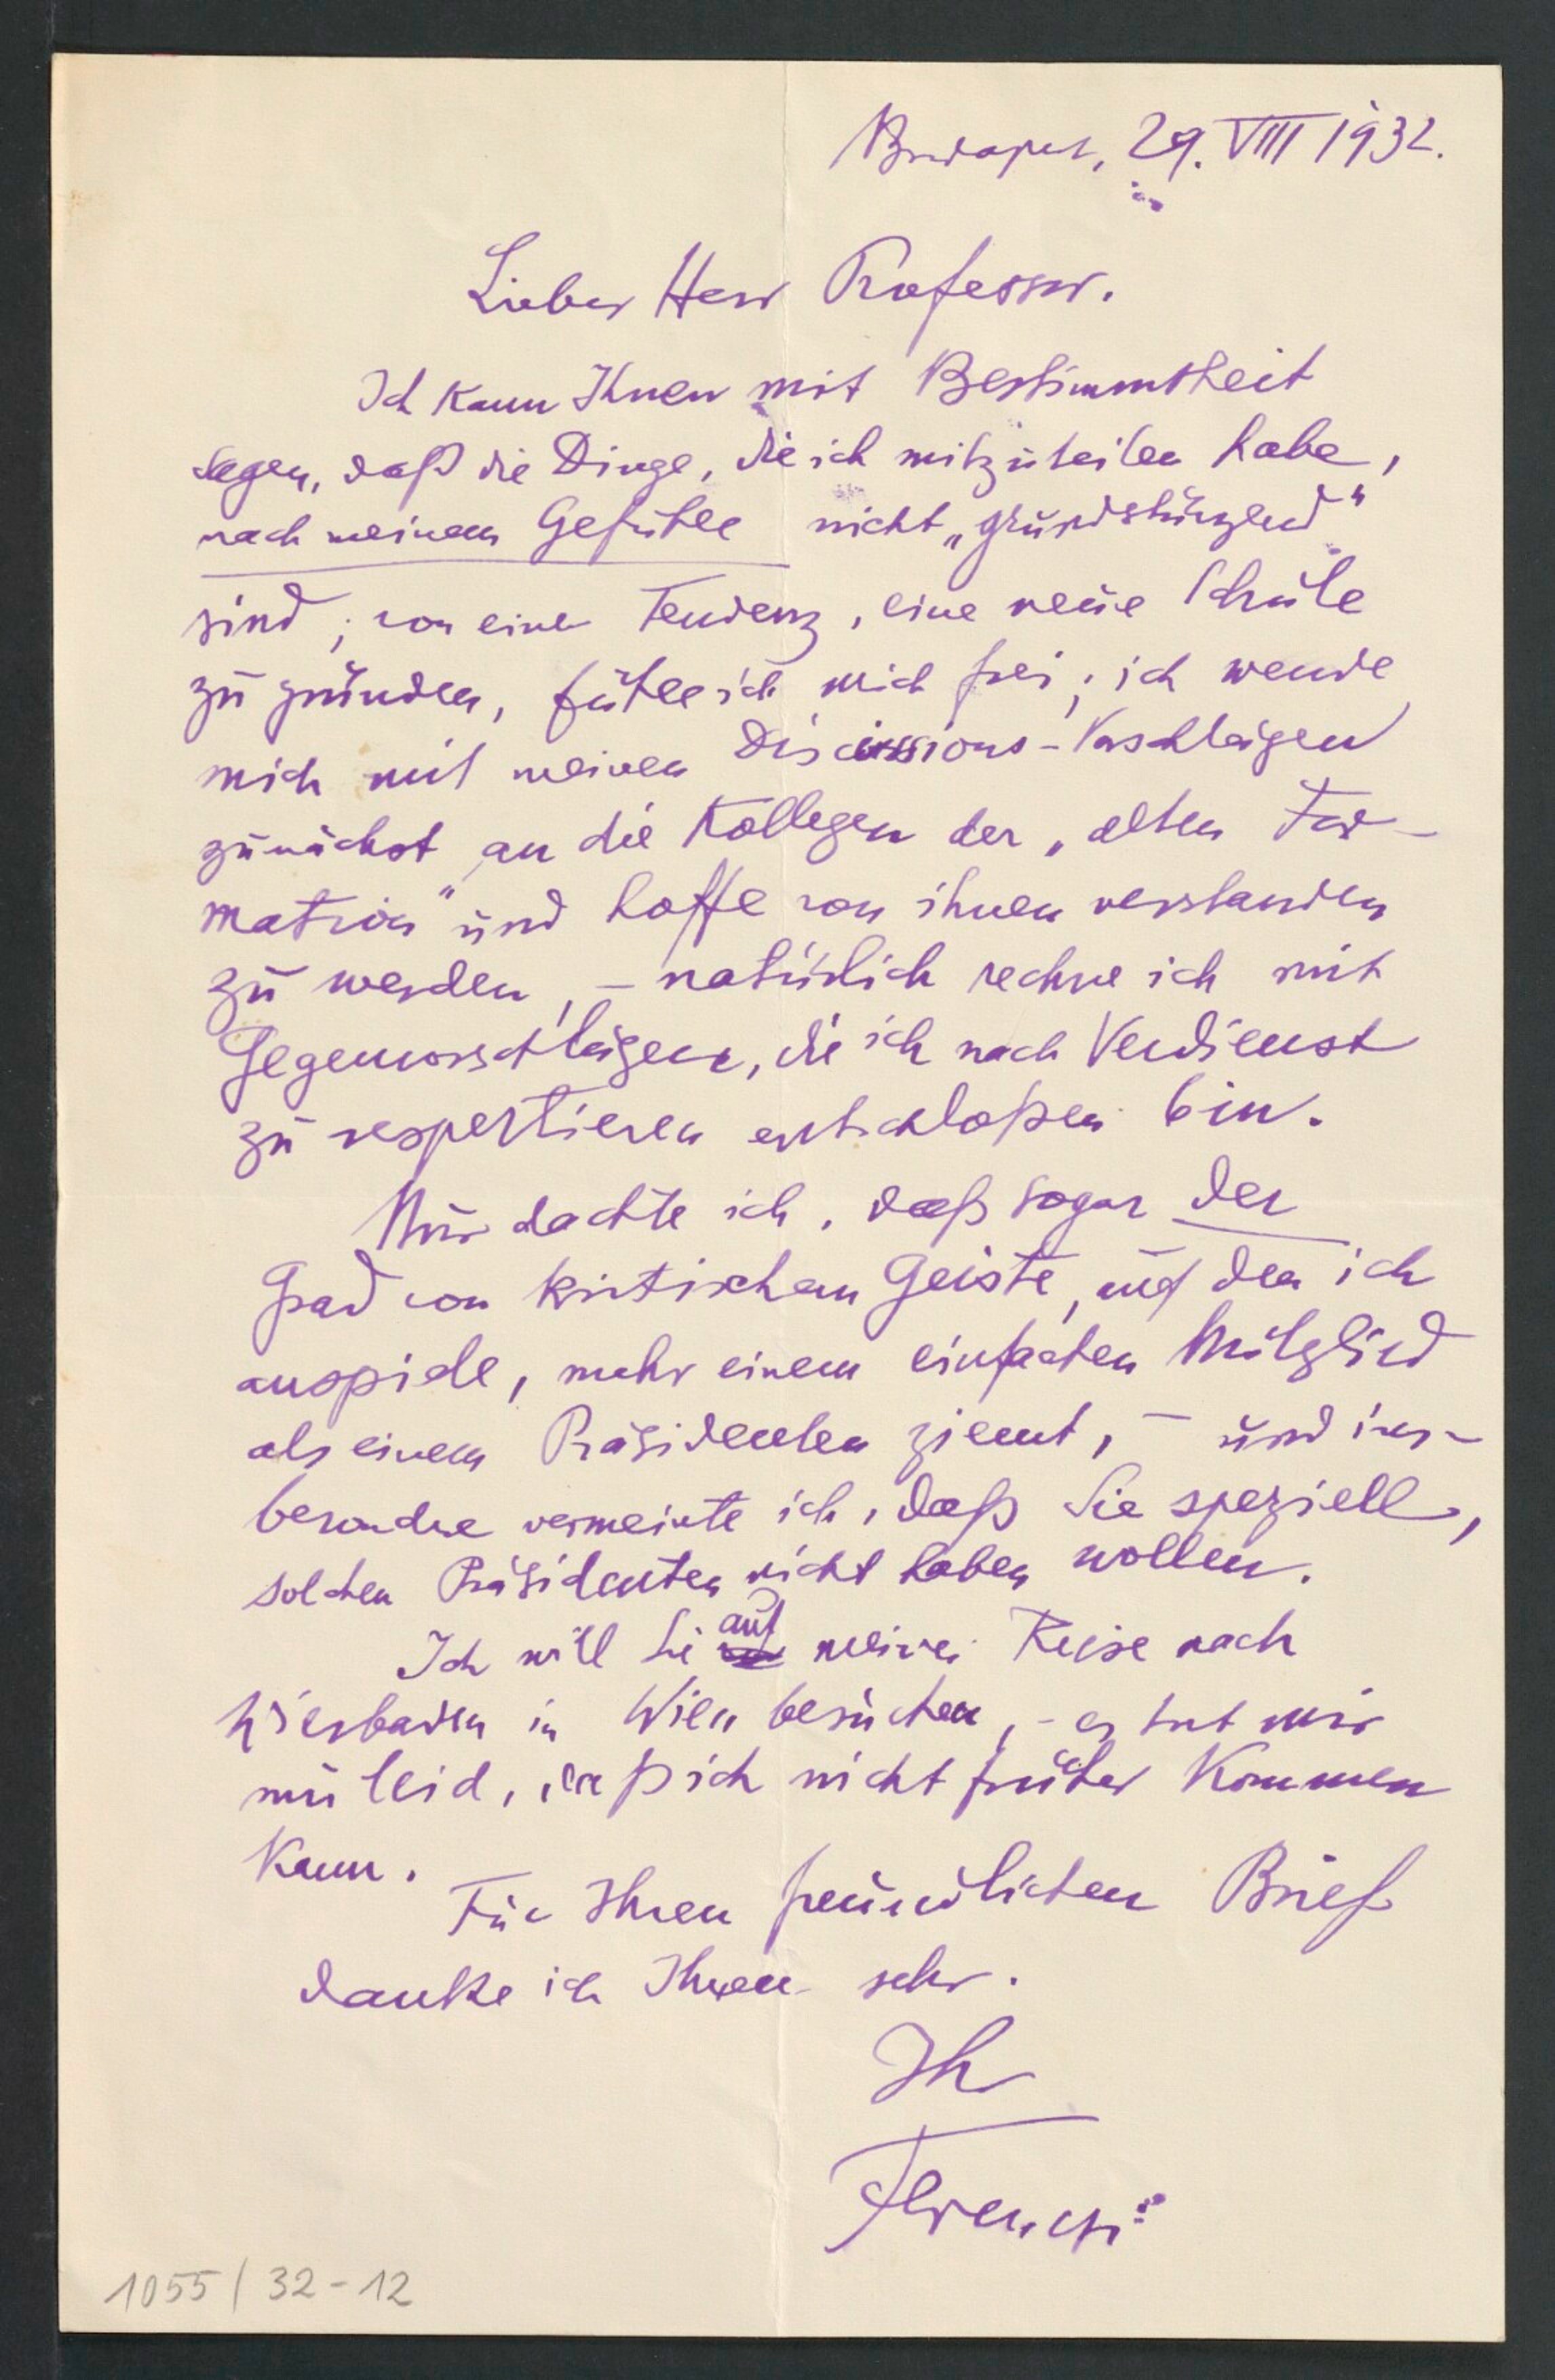 Budapest, 29. VIII 1932.
Lieber Herr Professor.
Ich kann Ihnen mit Bestimmtheit
sagen, daß die Dinge, die ich mitzuteilen habe,
nach meinem Gefühle nicht „grundstürzend“
sind; von einer Tendenz, eine neue Schule
zu gründen, fühle ich mich frei; ich wende
mich mit meinen Discussions-Vorschlägen
zunächst an die Kollegen der „alten For-
mation“ und hoffe von ihnen verstanden
zu werden, – natürlich rechne ich mit
Gegenvorschlägen, die ich nach Verdienst
zu respektieren entschloßen bin.
Nur dachte ich, daß sogar der
Grad von kritischem Geiste, auf den ich
anspiele, mehr einem einfachen Mitglied
als einem Präsidenten ziemt, – und ins-
besondre vermeinte ich, daß Sie speziell,
solchen Präsidenten nicht haben wollen.
Ich will Sie auf meiner Reise nach
Wiesbaden in Wien besuchen, – es tut mir
nur leid, daß ich nicht früher kommen
kann.
Für Ihren freundlichen Brief
danke ich Ihnen sehr.
Ihr
Ferenczi
1055/32-12